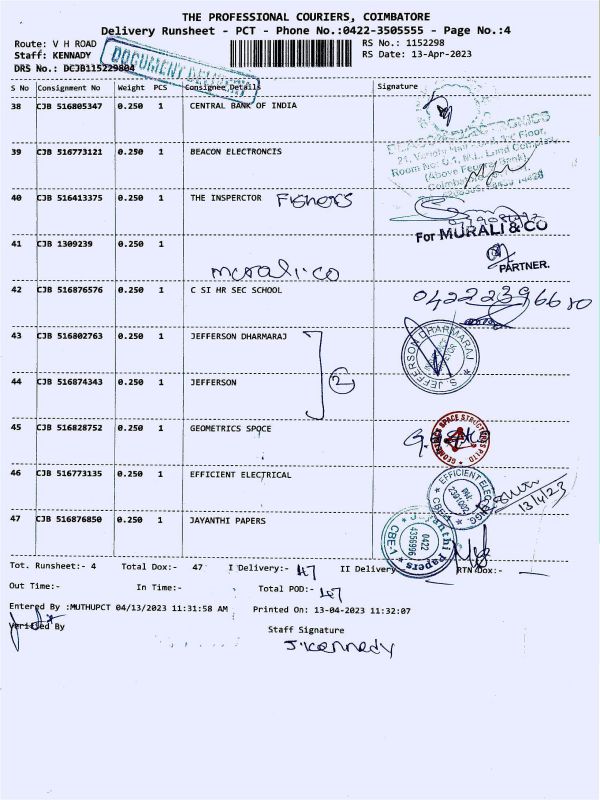 THE PROFESSIONAL COURIERS, COIMBATORE
Delivery Runsheet - PCT - Phone No.:0422-3505555 - Page No.:4
Route: V H ROAD RS No.: 1152298
Staff: KENNADY RS Date: 13-Apr-2023
DRS No.: DCJB115229804
DOCUMENT DELIVERY
S No Consignment No Weight PCS Consignee Details Signature
38 CJB 516805347 0.250 1 CENTRAL BANK OF INDIA
39 CJB 516773121 0.250 1 BEACON ELECTRONCIS
(Above Federal Bank)
40 CJB 516413375 0.250 1 THE INSPERCTOR FISHERS
For MURALI & CO
41 CJB 1309239 0.250 1
PARTNER.
murali.co
42 CJB 516876576 0.250 1 C SI HR SEC SCHOOL
43 CJB 516802763 0.250 1 JEFFERSON DHARMARAJ
S. JEFFERSON DHARMARAJ
2
44 CJB 516874343 0.250 1 JEFFERSON
45 CJB 516828752 0.250 1 GEOMETRICS SPOCE
46 CJB 516773135 0.250 1 EFFICIENT ELECTRICAL
13/4/23
47 CJB 516876850 0.250 1 JAYANTHI PAPERS
Jayanthi Papers
0422
4356996
CBE-1
Tot. Runsheet:- 4 Total Dox:- 47 I Delivery:- 47 II Delivery:- RTN Dox:-
Out Time:- In Time:- Total POD:- 47
Entered By :MUTHUPCT 04/13/2023 11:31:58 AM Printed On: 13-04-2023 11:32:07
Verified By Staff Signature
J. Kennedy